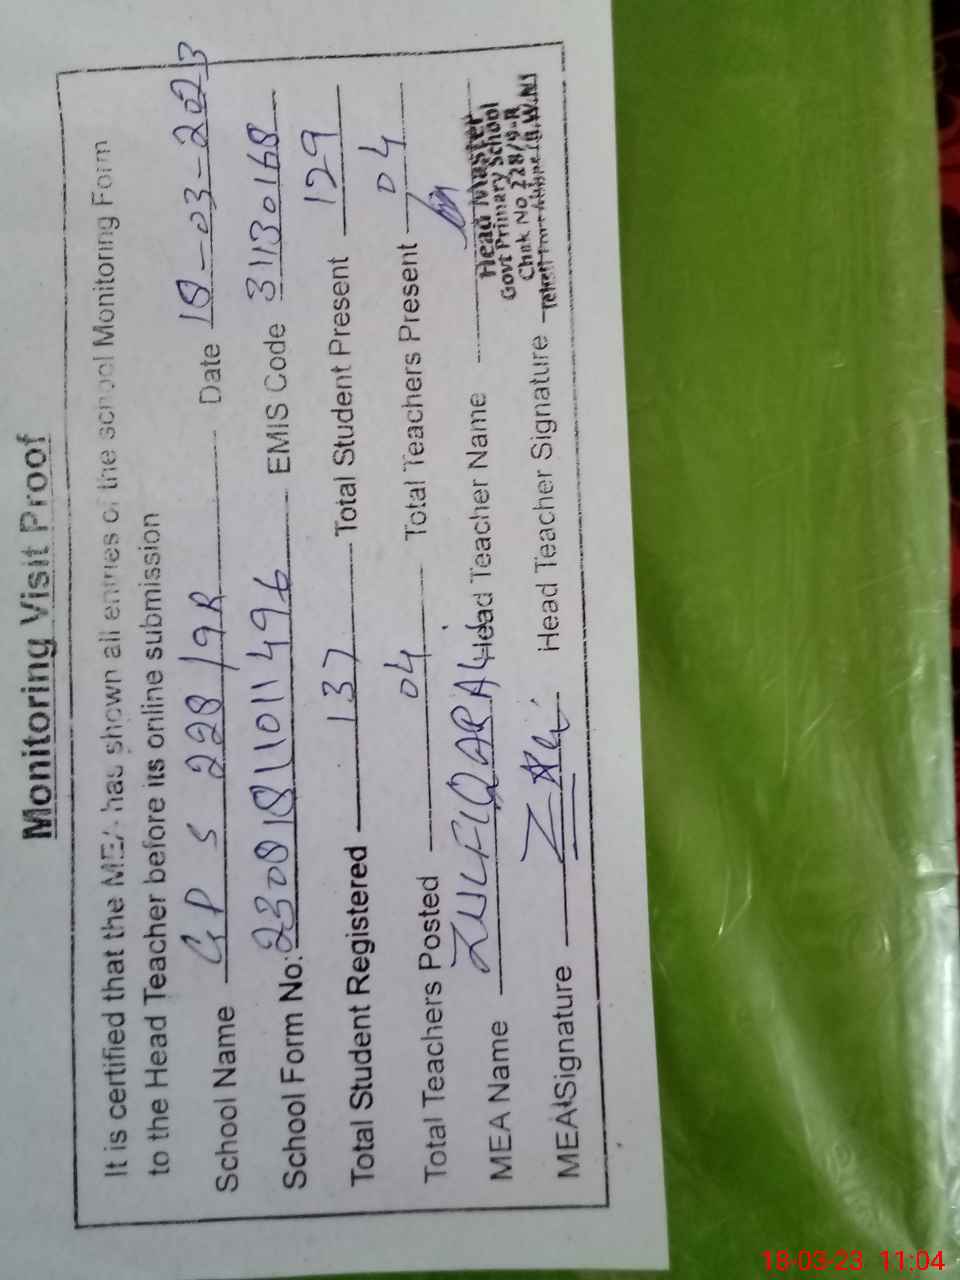 Monitoring Visit Proof
It is certified that the MEA has shown all entries of the school Monitoring Form
to the Head Teacher before its online submission
School Name GPS 228/9R Date 18-03-2023
School Form No: 2308181101496 EMIS Code 31130168
Total Student Registered 137 Total Student Present 129
Total Teachers Posted 04 Total Teachers Present 04
MEA Name ZULFIQAR ALI Head Teacher Name
MEA Signature Z Ali Head Teacher Signature
Head Master
Govt Primary School
Chak No 228/9-R
Tehsil Fort Abbas (B.W.N)
18-03-23 11:04